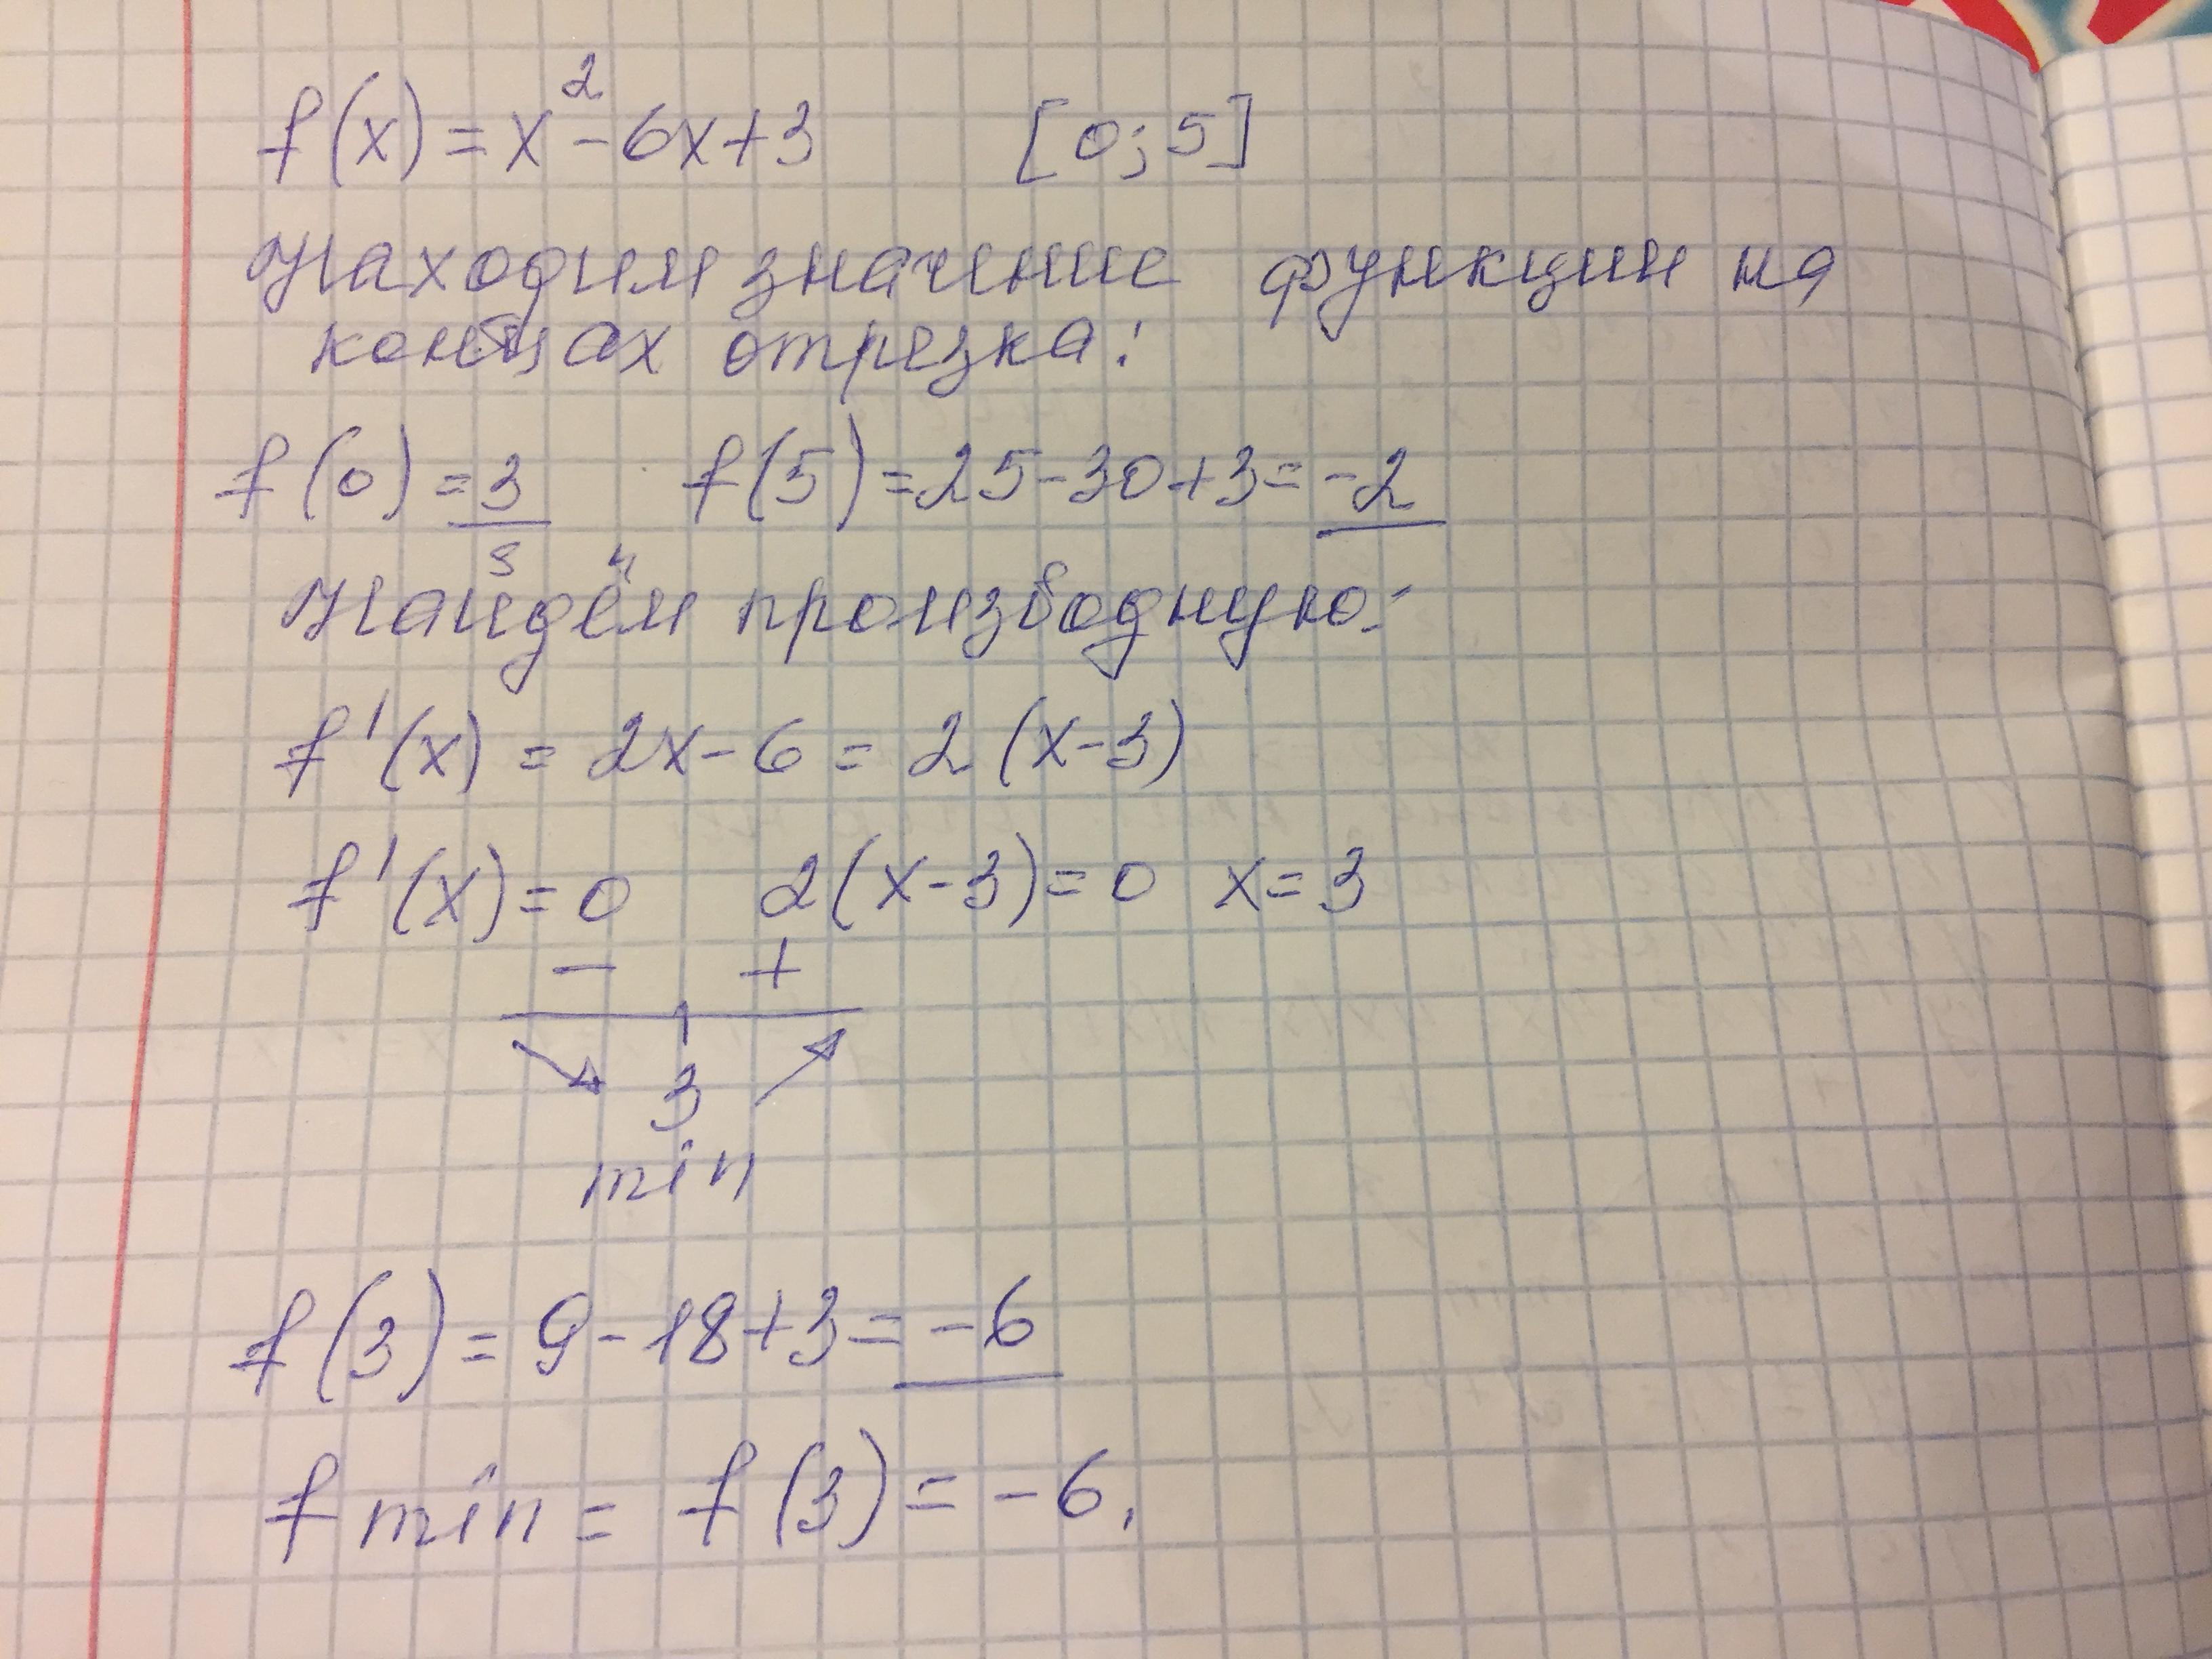 f(x) = x² - 6x + 3 [0; 5]
Находим значение функции на
концах отрезка:
f(0) = 3 f(5) = 25 - 30 + 3 = -2
Найдём производную:
f'(x) = 2x - 6 = 2(x - 3)
f'(x) = 0 2(x - 3) = 0 x = 3
- +
3
min
f(3) = 9 - 18 + 3 = -6
f min = f(3) = -6.